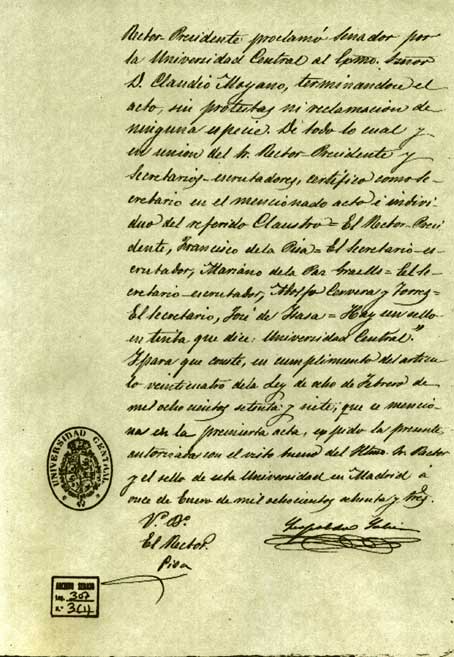 Rector-Presidente proclamó Senador por
la Universidad Central al Excmo. Señor
D. Claudio Moyano, terminandose el
acto, sin protestas ni reclamacion de
ninguna especie. De todo lo cual y
en union del Sr. Rector-Presidente y
Secretarios-escrutadores, certifico como Se-
cretario en el mencionado acto é indivi-
duo del referido Claustro = El Rector-Presi-
dente, Francisco de la Pisa = El Secretario-es-
crutador, Mariano de la Paz Graells = El Se-
cretario-escrutador, Adolfo Cervera y Torres =
El Secretario, José de Isasa = Hay un sello
en tinta que dice: Universidad Central."
Y para que conste, en cumplimento del articu-
lo veinticuatro de la Ley de ocho de Febrero de
mil ochocientos setenta y siete, que se mencio-
nas en la preinserta acta, expido la presente
autorizada con el visto bueno del Iltmo. Sr. Rector
y el sello de esta Universidad en Madrid á
once de Enero de mil ochocientos ochenta y tres.
V.º B.º
El Rector.
Pisa
Leopoldo Solier
UNIVERSIDAD CENTRAL
ARCHIVO SENADO
Leg. 307
N.º 3(1)